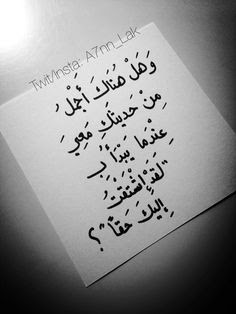 Twit/Insta: A7nn_Lak
وَهَلْ هُنَاكَ أَجْمَلُ
مِنْ حَديثِكَ مَعِيَ
عِنْدِما يَبْدَأُ بِ
"لَقَدْ إِشْتَقْتُ
إِليكَ حَقاً"؟